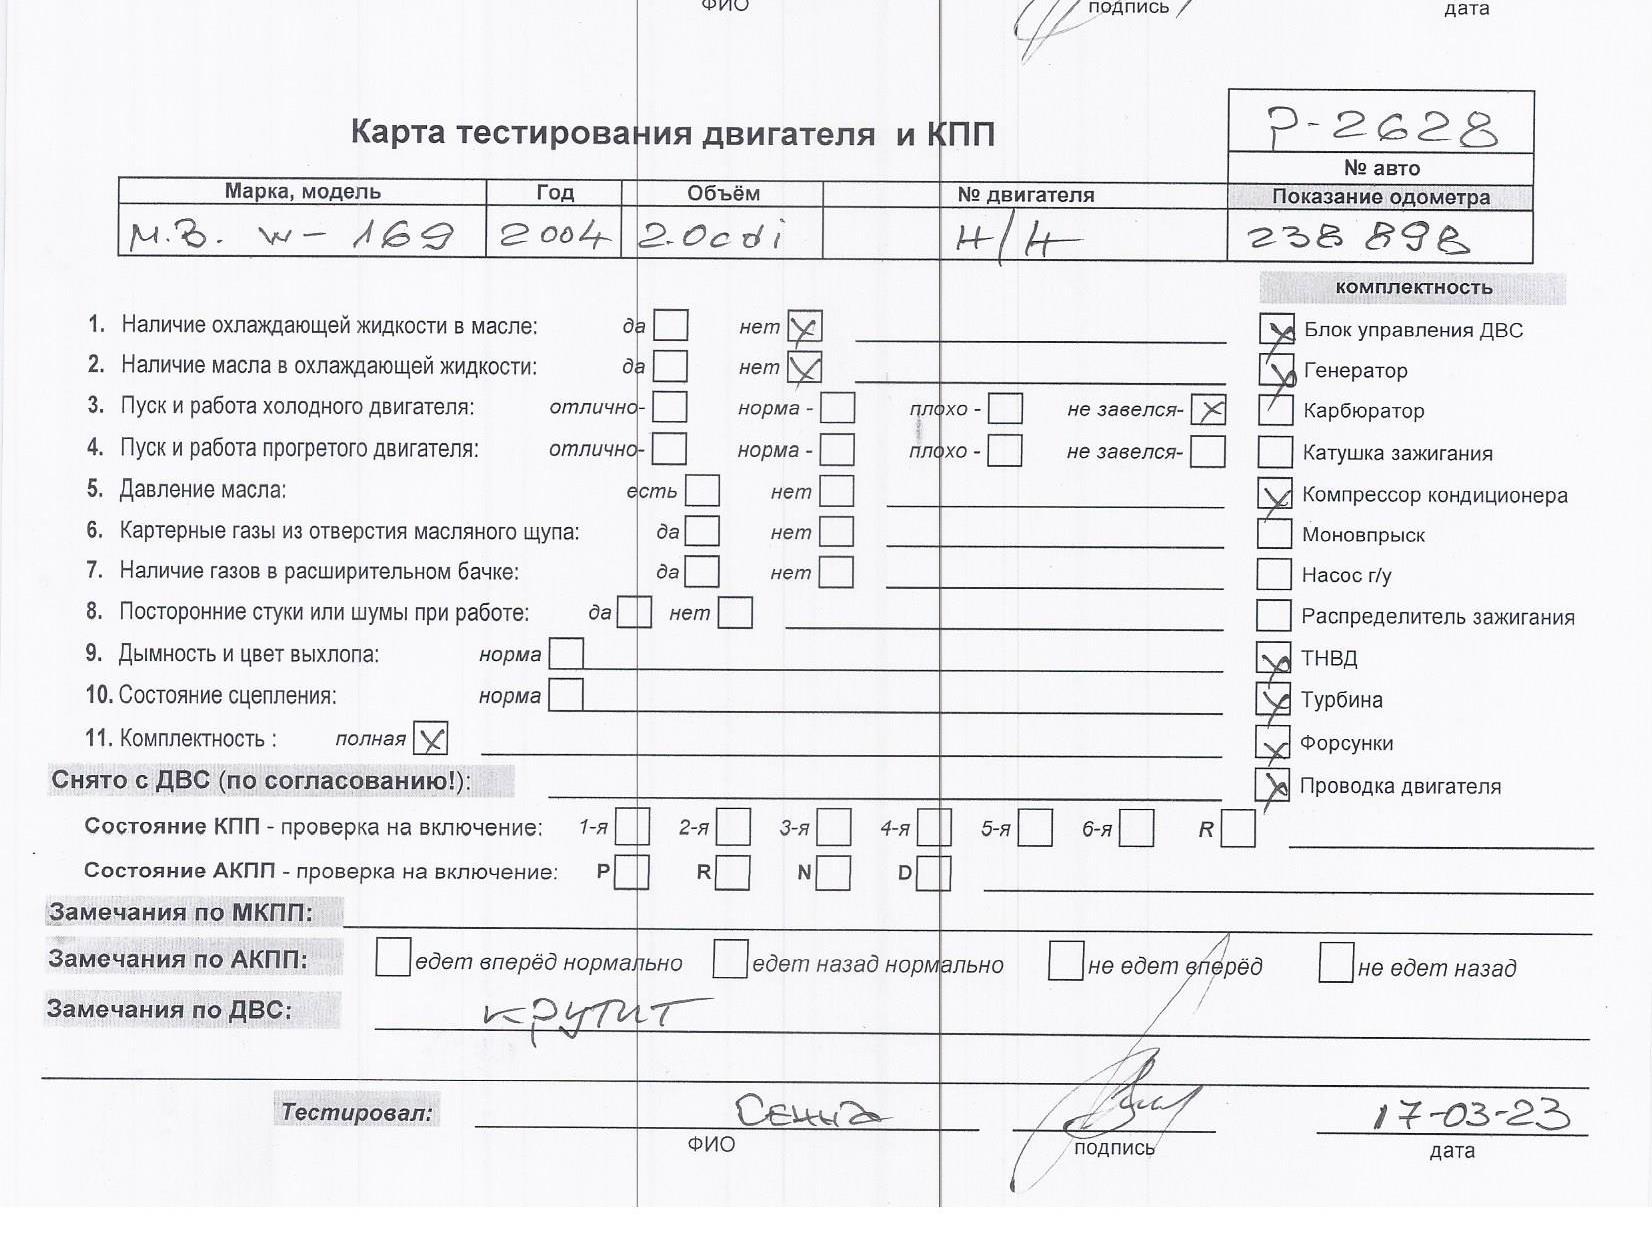 ФИО подпись дата
Карта тестирования двигателя и КПП
Р-2628
№ авто
Марка, модель Год Объём № двигателя Показание одометра
М.В. W-169 2004 2.0cdi Н/Н 238 898
комплектность
1. Наличие охлаждающей жидкости в масле: да нет Блок управления ДВС
2. Наличие масла в охлаждающей жидкости: да нет Генератор
3. Пуск и работа холодного двигателя: отлично- норма - плохо - не завелся- Карбюратор
4. Пуск и работа прогретого двигателя: отлично- норма - плохо - не завелся- Катушка зажигания
5. Давление масла: есть нет Компрессор кондиционера
6. Картерные газы из отверстия масляного щупа: да нет Моновпрыск
7. Наличие газов в расширительном бачке: да нет Насос г/у
8. Посторонние стуки или шумы при работе: да нет Распределитель зажигания
9. Дымность и цвет выхлопа: норма ТНВД
10. Состояние сцепления: норма Турбина
11. Комплектность : полная Форсунки
Снято с ДВС (по согласованию!): Проводка двигателя
Состояние КПП - проверка на включение: 1-я 2-я 3-я 4-я 5-я 6-я R
Состояние АКПП - проверка на включение: P R N D
Замечания по МКПП:
Замечания по АКПП: едет вперёд нормально едет назад нормально не едет вперёд не едет назад
Замечания по ДВС: крутит
Тестировал: Сенна 17-03-23
ФИО подпись дата